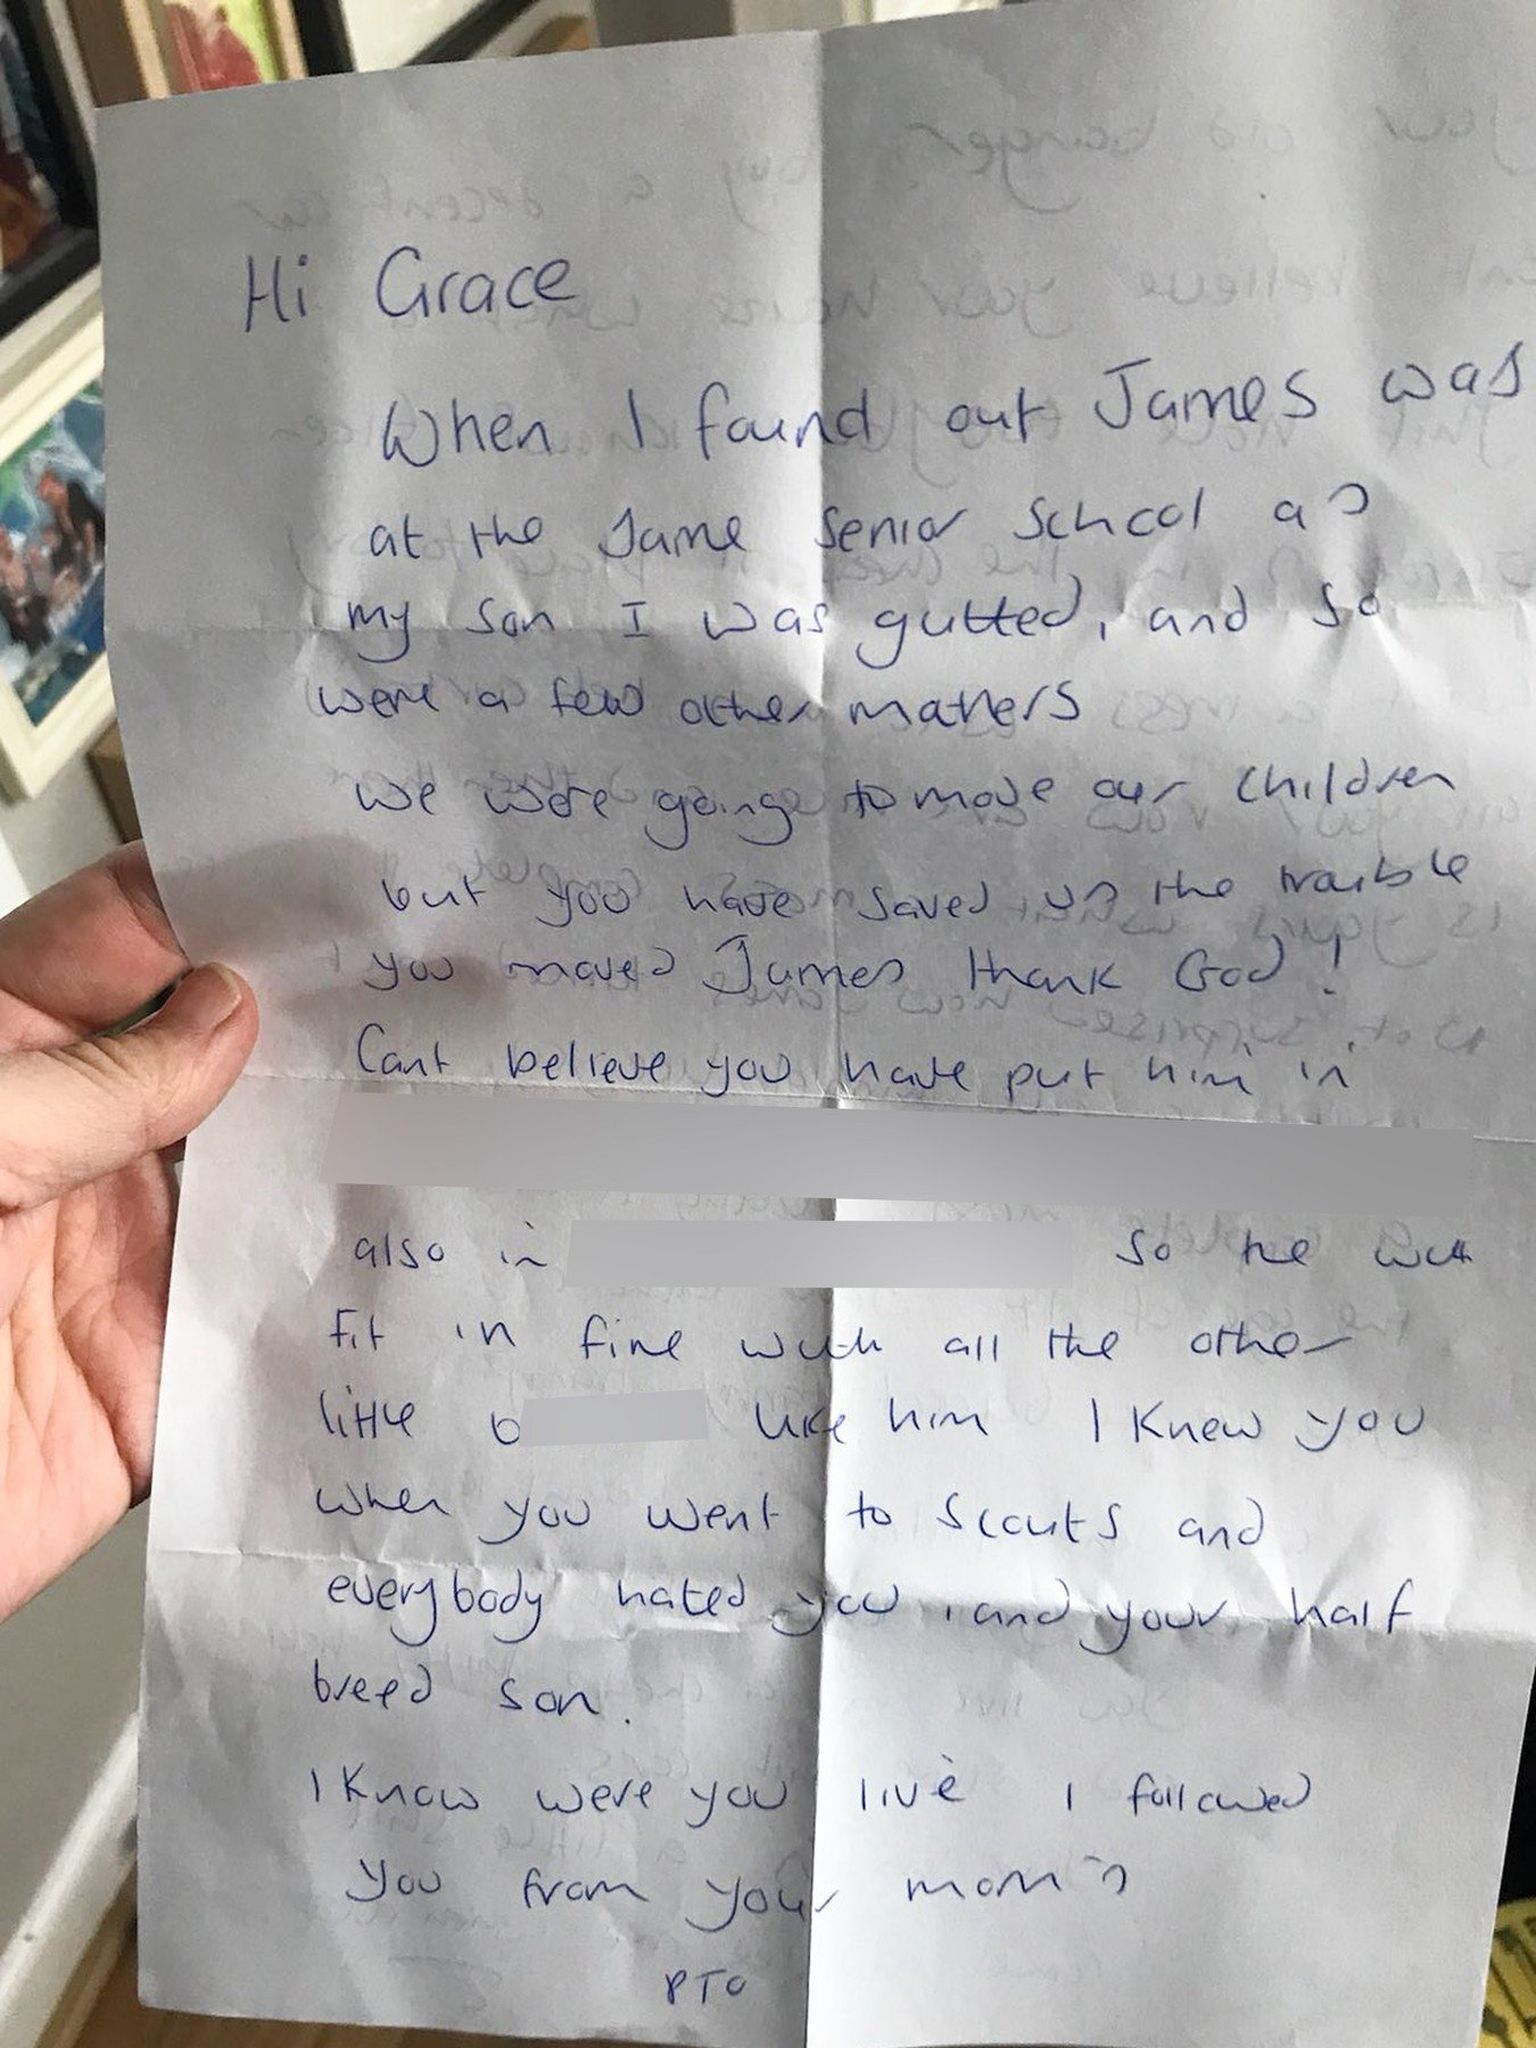 Hi Grace
When I found out James was
at the same senior school as
my son I was gutted, and so
were a few other mothers
we were going to move our children
but you have saved us the trouble
you moved James thank God!
Cant believe you have put him in
also in so he will
fit in fine with all the other
little b like him I knew you
when you went to scouts and
everybody hated you, and your half
breed son.
I know were you live I followed
you from your mom's
PTO